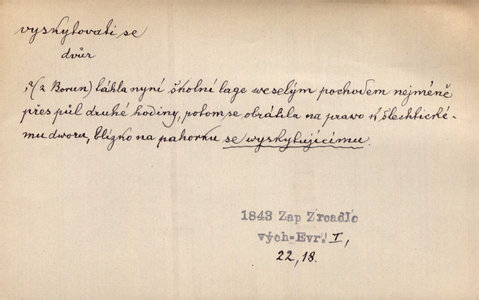 vyskytovati se
dvůr
(z Borun) táhla nyní školní lage weselým pochodem nejméně
přes půl druhé hodiny, potom se obrátila na prawo k šlechtické-
mu dworu, blízko na pahorku se wyskytujícímu.
1843 Zap Zrcadlo
vých-Evr. I,
22, 18.